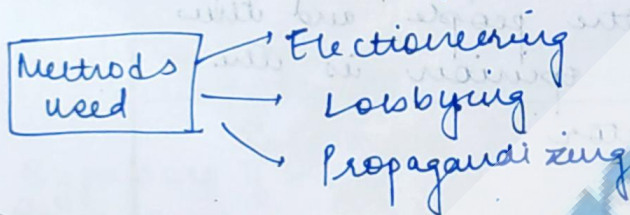 Methods
used
Electioneering
Lobbying
Propagandizing